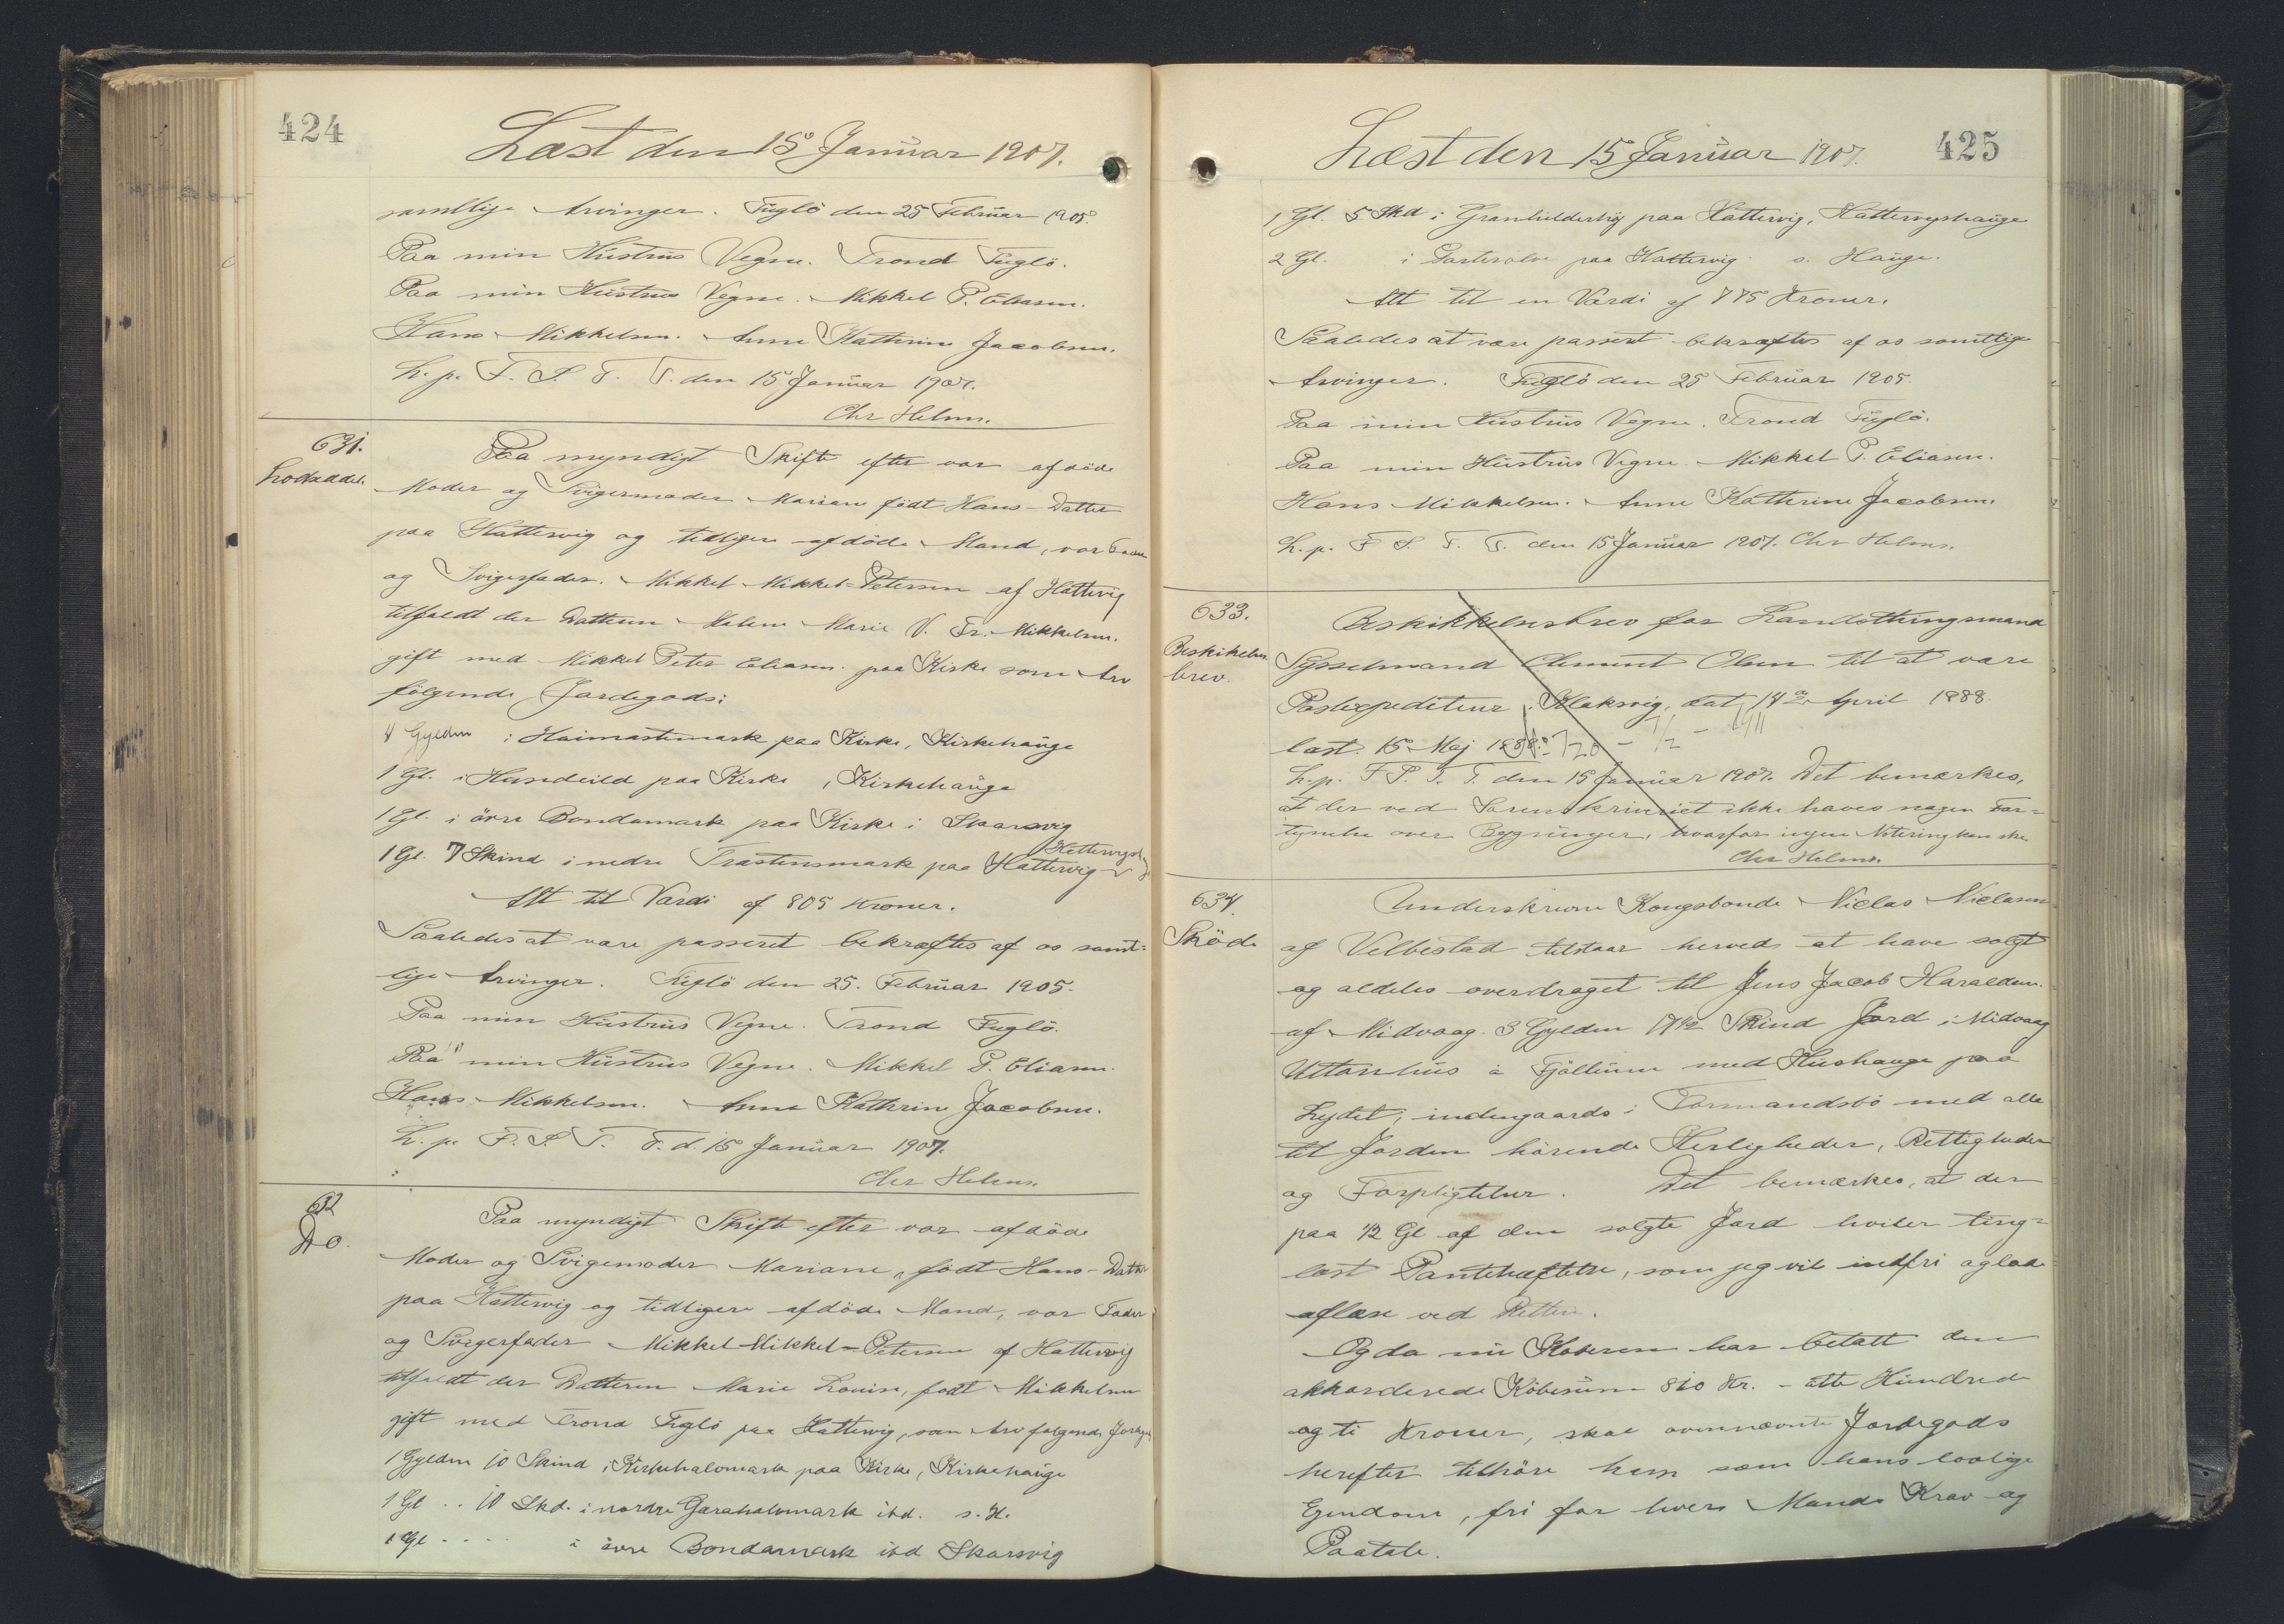 424
Læst den 15 Januar 1907.
samtlige Arvinger. Fuglö den 25 Februar 1905.
Paa min Hustrus Vegne. Trond Fuglö.
Paa min Hustrus Vegne. Mikkel P. Eliasen.
Hans Mikkelsen. Anne Kathrine Jacobsen.
L. p. F. S. T. T. den 15 Januar 1907.
Chr Helms.
631.
Lodseddel.
Paa myndigt Skifte efter vor afdöde
Moder og Svigermoder Mariane födt Hans-Datter
paa Hattervig og tidligere afdöde Mand, vor Fader
og Svigerfader. Mikkel Mikkel-Petersen af Hattervig
tilfaldt der Datteren Malene Marie V. Fr. Mikkelsen.
gift med Mikkel Peter Eliasen. paa Kirke som Arv
fölgende Jordegods:
1 Gylden i Haimastemark paa Kirke, Kirkehauge
1 Gl. i Husedeild paa Kirke, Kirkehauge
1 Gl. i övre Bondamark paa Kirke i Skarsvig
1 Gl. 7 Skind i nedre Trastensmark paa Hattervig
Alt til Værdi af 805 Kroner.
Saaledes at være passeret bekræftes af os samt-
lige Arvinger. Fuglö den 25. Februar 1905.
Paa min Hustrus Vegne. Trond Fuglö.
Paa min Hustrus Vegne. Mikkel P. Eliasen.
Hans Mikkelsen. Anne Kathrine Jacobsen.
L. p. F. S. T. T. d. 15 Januar 1907.
Chr Helms.
632
Do.
Paa myndigt Skifte efter vor afdöde
Moder og Svigemoder Mariane, födt Hans-Datter
paa Hattervig og tidligere afdöde Mand, vor Fader
og Svigerfader Mikkel Mikkel-Petersen af Hattervig
tilfaldt der Datteren Marie Louise, födt Mikkelsen
gift med Trond Fuglö paa Hattervig, som Arv fölgende
1 Gylden 10 Skind i Kirkehalvmark paa Kirke, Kirkehauge
1 Gl. .. 10 Skd. i nordre Garahalvmark ibd. s. H.
1 Gl. .... i övre Bondamark ibd Skarsvig
Læst den 15 Januar 1907.
425
1 Gl. 5 Skd i paa Hattervig, Hattervigshauge
2 Gl. i paa Hattervig s. Hauge.
Alt til en Værdi af 775 Kroner.
Saaledes at være passert bekræftes af os samtlige
Arvinger. Fuglö den 25 Februar 1905.
Paa min Hustrus Vegne. Trond Fuglö.
Paa min Hustrus Vegne. Mikkel P. Eliasen.
Hans Mikkelsen. Anne Kathrine Jacobsen.
L. p. F. S. T. T. den 15 Januar 1907. Chr Helms.
633.
Beskikelses
brev.
Beskikkelsesbrev for Landsthingsmand
Sysselmand Clement Olsen til at være
Postexpediteur i Klaksvig, dat 14de April 1888
læst. 15 Maj 1888.
L. p. F. S. T. T. den 15 Januar 1907. Det bemærkes,
at der ved Sorenskriveriet ikke haves nogen For-
tegnelse over Bygninger, hvorfor ingen Notering kan ske
Chr Helms.
634.
Sköde
Underskrevne Kongsbonde Niclas Niclasen
af Velbestad tilstaar herved at have solgt
og aldeles overdraget til Jens Jacob Haraldsen.
af Midvaag. 3 Gylden 17½ Skind Jord i Midvaag
Uttanhus à Fjöllunum med Hushauge paa
Lydet, indengaards i Formandsbö med alle
til Jorden hörende Herligheder, Rettigheder
og Forpligtelser. Det bemærkes, at der
paa ½ Gl. af den solgte Jord hviler ting-
læst Pantehæftelse, som jeg vil indfri og lade
aflæse ved Retten.
Og da nu Köberen har betalt den
akkorderede Köbesum 810 Kr. - otte Hundrede
og ti Kroner, skal ovennævnte Jordegods
herefter tilhöre ham som hans lovlige
Ejendom, fri for hvers Mands Krav og
Paatale.